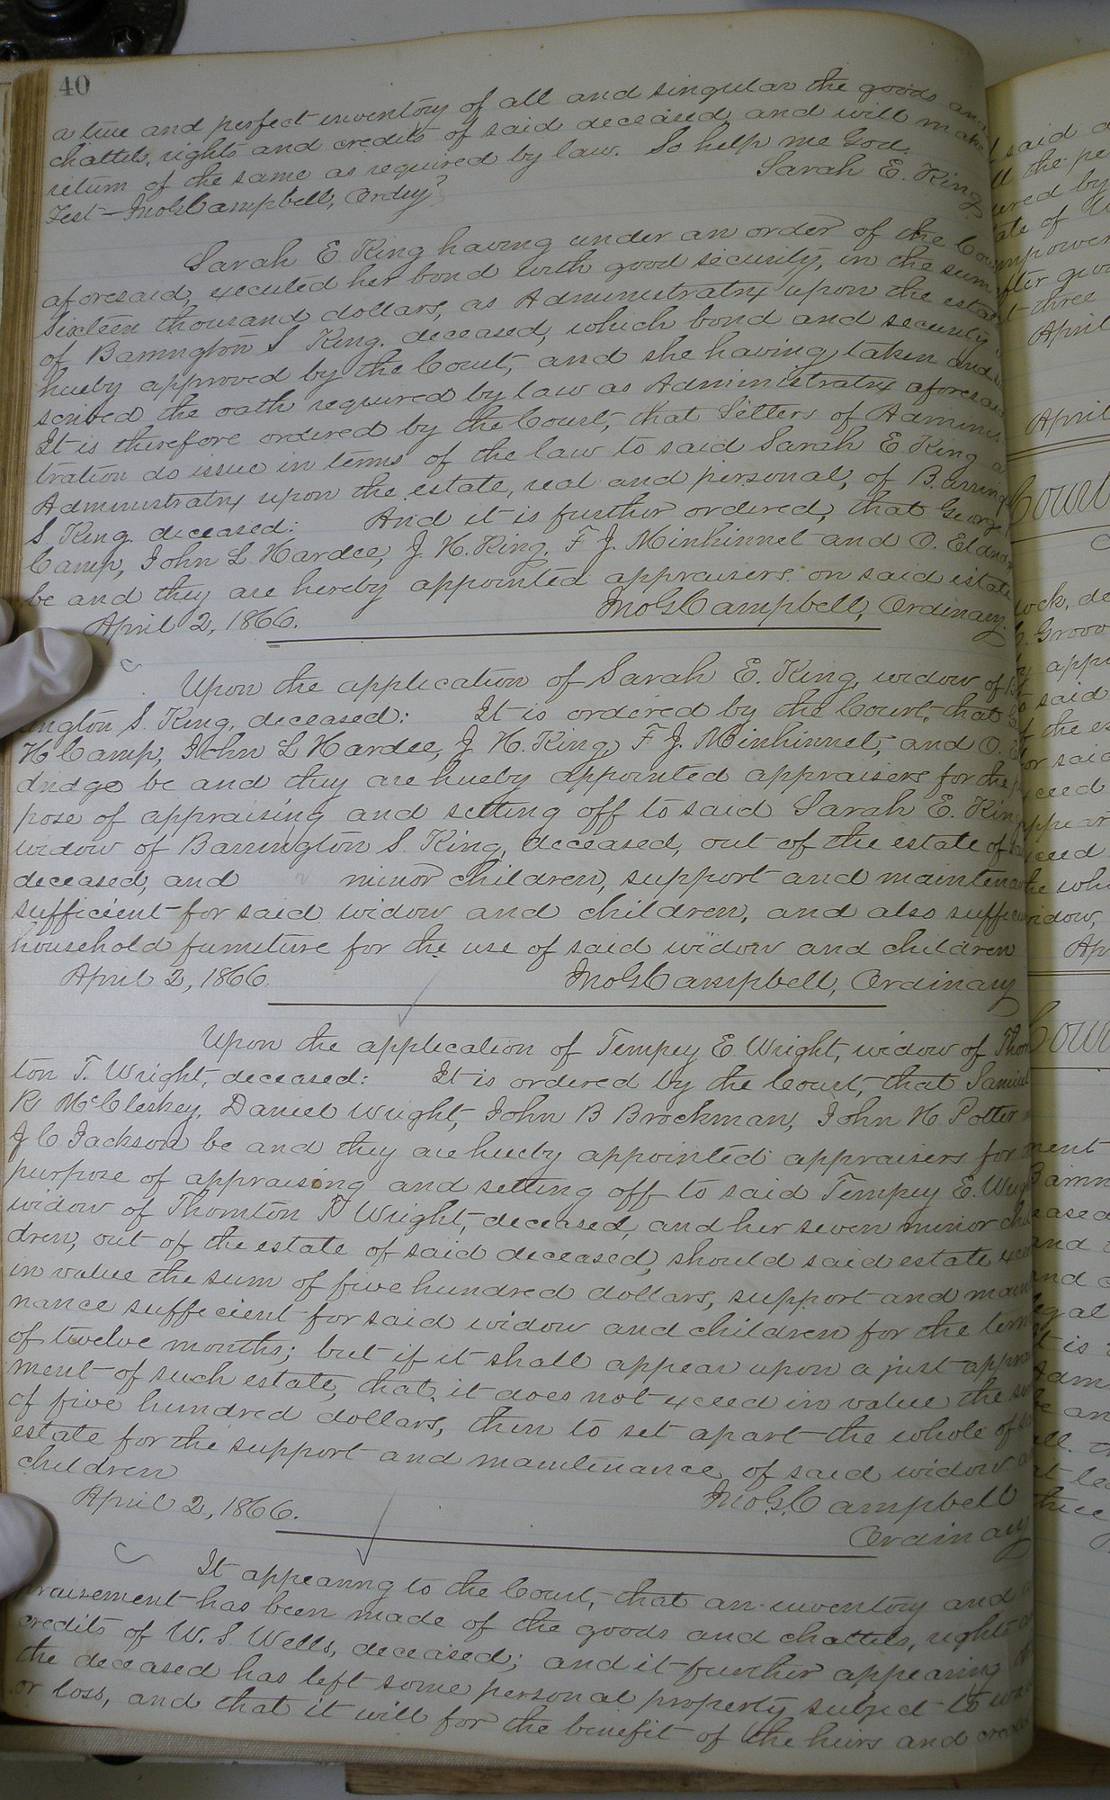 40
a true and perfect inventory of all and singular the goods and
chattels, rights and credits of said deceased, and will make
return of the same as required by law. So help me God.
Sarah E. King
Test – Jno G Campbell, Ordry
Sarah E King having under an order of the Cou
aforesaid, executed her bond with good security, in the sum
Sixteen thousand dollars, as Administratrix upon the estate
of Barrington S King. deceased, which bond and security
hereby approved by the Court, and she having taken and
scribed the oath required by law as Administratrix aforesaid
It is therefore ordered by the Court, that Letters of Adminis
tration do issue in terms of the law to said Sarah E King a
Administratrix upon the estate, real and personal, of Barring
S King. deceased: And it is further ordered, that George
Camp, John L. Hardee, J. H. King, F J. Minhinnet and O. Eldri
be and they are hereby appointed appraisers on said estate
April 2, 1866. Jno G Campbell, Ordinary.
Upon the application of Sarah E. King, widow of B
ington S. King, deceased: It is ordered by the Court, that
H Camp, John L Hardee, J. H. King, F J. Minhinnet, and O.
dridge be and they are hereby appointed appraisers for the
pose of appraising and setting off to said Sarah E. King
widow of Barrington S. King, deceased, out of the estate of
deceased, and minor children, support and maintena
sufficient for said widow and children, and also suffici
household furniture for the use of said widow and children
April 2, 1866 Jno G Campbell, Ordinary
Upon the application of Tempey E. Wright, widow of Thorn
ton T. Wright, deceased: It is ordered by the Court, that Samuel
R McCleskey, Daniel Wright, John B Brockman, John H Potter
J C Jackson be and they are hereby appointed appraisers for
purpose of appraising and setting off to said Tempey E. Wrig
widow of Thornton T Wright, deceased, and her seven minor chil
dren, out of the estate of said deceased, should said estate exceed
in value the sum of five hundred dollars, support and mainte
nance sufficient for said widow and children for the term
of twelve months; but if it shall appear upon a just apprai
ment of such estate, that it does not exceed in value the sum
of five hundred dollars, then to set apart the whole of
estate for the support and maintenance of said widow a
children
April 2, 1866. Jno G. Campbell
Ordinary
It appearing to the Court, that an inventory and
praisement has been made of the goods and chattels, rights
credits of W. S Wells, deceased; and it further appearing
the deceased has left some personal property subject to
or loss, and that it will for the benefit of the heirs and